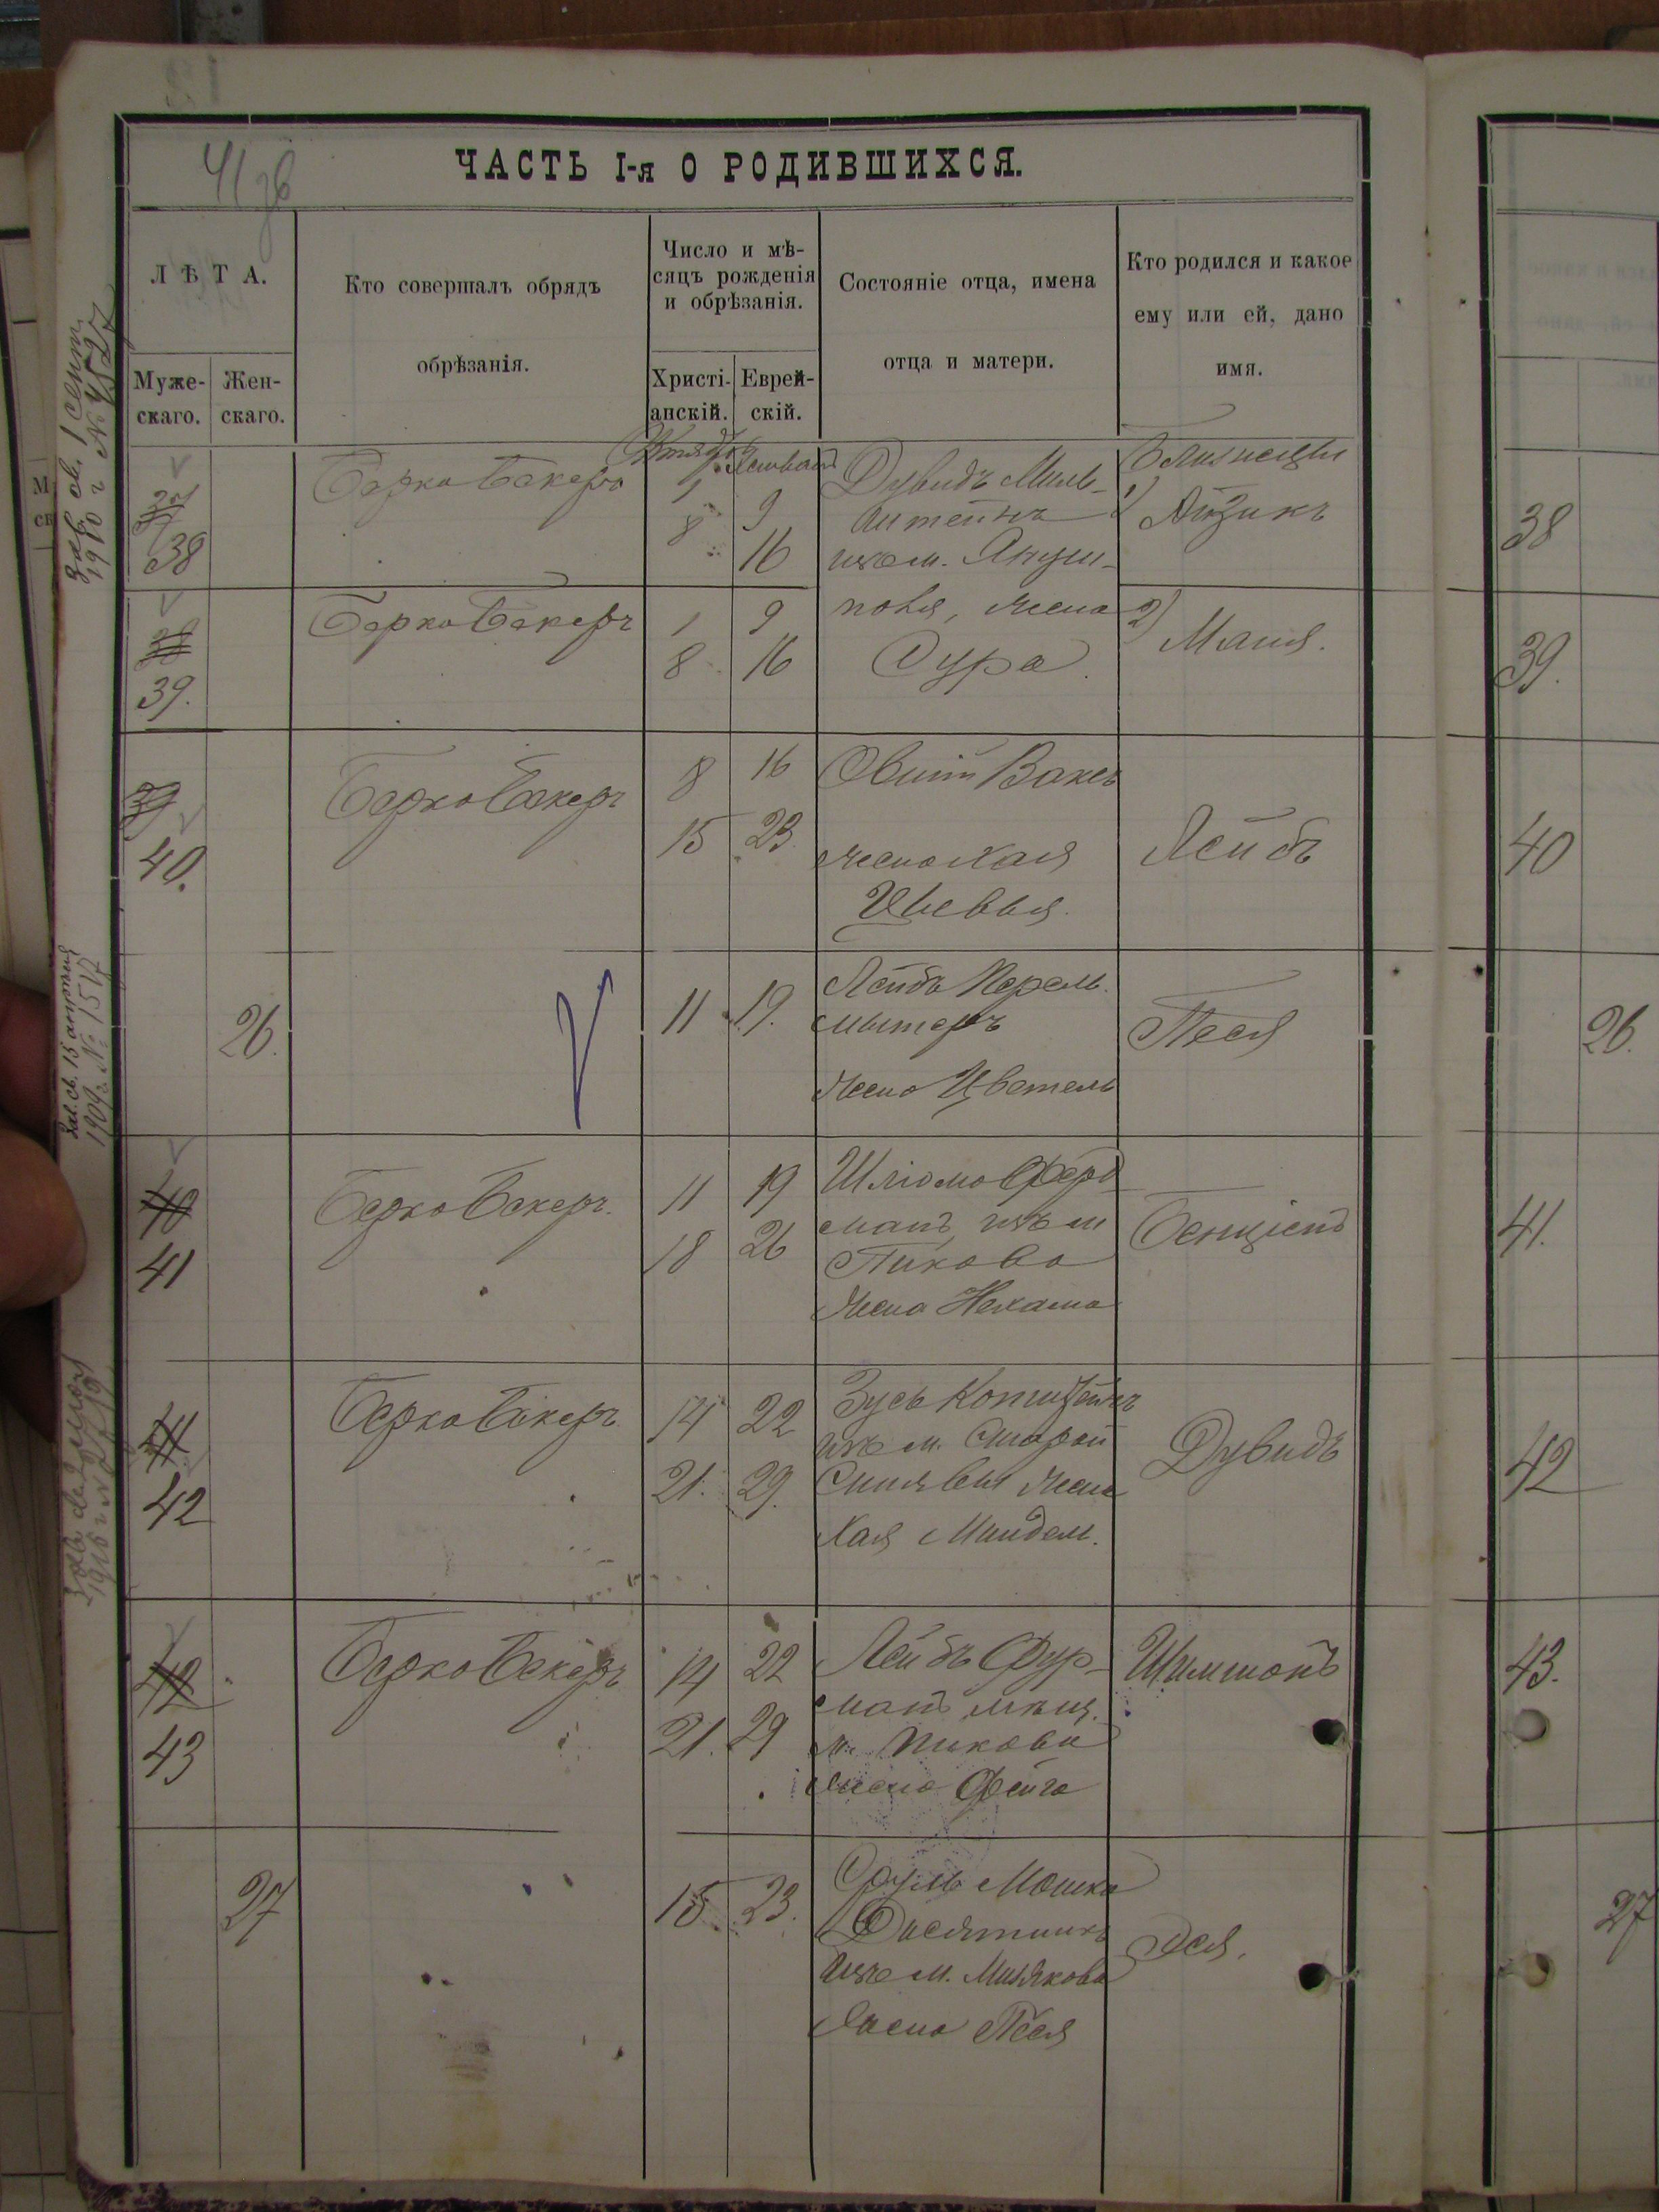 41 зв
ЧАСТЬ I-я О РОДИВШИХСЯ.
ЛѢТА.
Муже-
скаго.
Жен-
скаго.
Кто совершалъ обрядъ
обрѣзанія.
Число и мѣ-
сяцъ рожденія
и обрѣзанія.
Христі-
анскій.
Еврей-
скій.
Состояніе отца, имена
отца и матери.
Кто родился и какое
ему или ей, дано
имя.
Октября
37
38
Берко Бакеръ
1
8
9
16
Дувидъ Миль-
штейнъ
изъ м. Януш-
поля, жена
Сура.
Близнецы
1) Айзикъ
38
39.
Берко Бакеръ
1
8
9
16
2) Маня.
39
40.
Берко Бакеръ
8
15
16
23
Овшій Ваксъ
жена Хая
Цивья.
Лейбъ
26.
11
19.
Лейбъ Перель-
мытеръ
жена Цветель
Песя
40
41
Берко Бакеръ.
11
18
19
26
Шліомо Фер
манъ, изъ м
Пикова
жена Нехама
Бенціенъ
41
42
Берко Бакеръ
14
21.
22
29.
Зусь
изъ м. Старой
Синявы жена
Хая Миндель.
Дувидъ
42
43
Берко Бакеръ
14
21.
22
29
Лейбъ Фур-
манъ мѣщ.
м. Пикова
жена Фейга
Шимшонъ
27
15
23.
Сруль Мошко
Десятникъ
изъ м. Милякова
жена Песя
Эся.
Заяв. св. 1 сент.
1910 г № 4527
Зал. св. 15 апрѣля
1909 г. № 1517
38
39.
40
26.
41.
42
43.
27